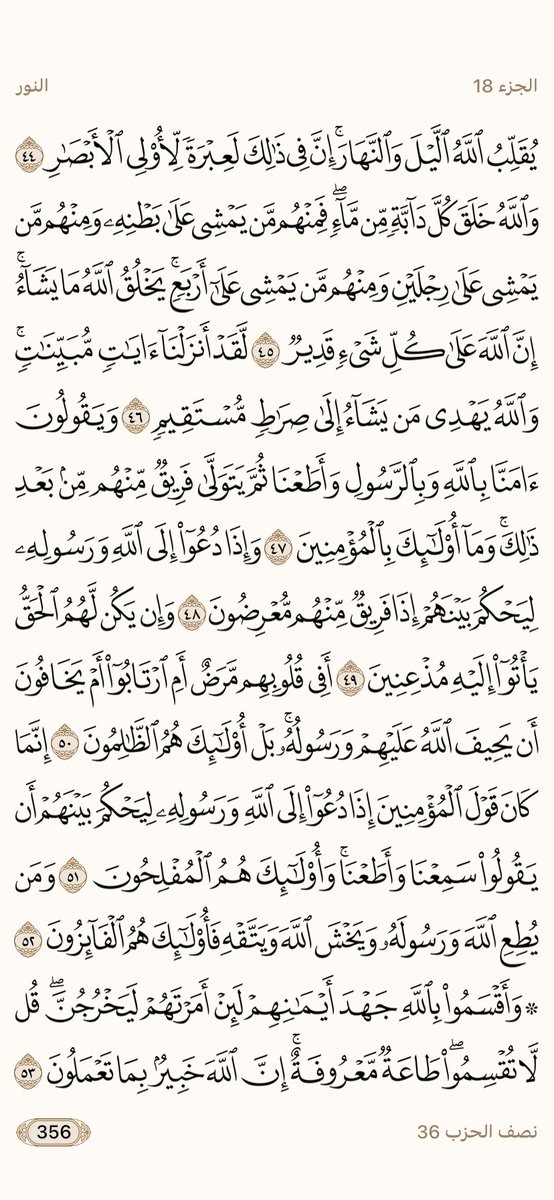 الجزء 18
النور
يُقَلِّبُ ٱللَّهُ ٱلَّيۡلَ وَٱلنَّهَارَۚ إِنَّ فِي ذَٰلِكَ لَعِبۡرَةٗ لِّأُوْلِي ٱلۡأَبۡصَٰرِ ٤٤
وَٱللَّهُ خَلَقَ كُلَّ دَآبَّةٖ مِّن مَّآءٖۖ فَمِنۡهُم مَّن يَمۡشِي عَلَىٰ بَطۡنِهِۦ وَمِنۡهُم مَّن
يَمۡشِي عَلَىٰ رِجۡلَيۡنِ وَمِنۡهُم مَّن يَمۡشِي عَلَىٰٓ أَرۡبَعٖۚ يَخۡلُقُ ٱللَّهُ مَا يَشَآءُۚ
إِنَّ ٱللَّهَ عَلَىٰ كُلِّ شَيۡءٖ قَدِيرٞ ٤٥ لَّقَدۡ أَنزَلۡنَآ ءَايَٰتٖ مُّبَيِّنَٰتٖۚ
وَٱللَّهُ يَهۡدِي مَن يَشَآءُ إِلَىٰ صِرَٰطٖ مُّسۡتَقِيمٖ ٤٦ وَيَقُولُونَ
ءَامَنَّا بِٱللَّهِ وَبِٱلرَّسُولِ وَأَطَعۡنَا ثُمَّ يَتَوَلَّىٰ فَرِيقٞ مِّنۡهُم مِّنۢ بَعۡدِ
ذَٰلِكَۚ وَمَآ أُوْلَٰٓئِكَ بِٱلۡمُؤۡمِنِينَ ٤٧ وَإِذَا دُعُوٓاْ إِلَى ٱللَّهِ وَرَسُولِهِۦ
لِيَحۡكُمَ بَيۡنَهُمۡ إِذَا فَرِيقٞ مِّنۡهُم مُّعۡرِضُونَ ٤٨ وَإِن يَكُن لَّهُمُ ٱلۡحَقُّ
يَأۡتُوٓاْ إِلَيۡهِ مُذۡعِنِينَ ٤٩ أَفِي قُلُوبِهِم مَّرَضٌ أَمِ ٱرۡتَابُوٓاْ أَمۡ يَخَافُونَ
أَن يَحِيفَ ٱللَّهُ عَلَيۡهِمۡ وَرَسُولُهُۥۚ بَلۡ أُوْلَٰٓئِكَ هُمُ ٱلظَّٰلِمُونَ ٥٠ إِنَّمَا
كَانَ قَوۡلَ ٱلۡمُؤۡمِنِينَ إِذَا دُعُوٓاْ إِلَى ٱللَّهِ وَرَسُولِهِۦ لِيَحۡكُمَ بَيۡنَهُمۡ أَن
يَقُولُواْ سَمِعۡنَا وَأَطَعۡنَاۚ وَأُوْلَٰٓئِكَ هُمُ ٱلۡمُفۡلِحُونَ ٥١ وَمَن
يُطِعِ ٱللَّهَ وَرَسُولَهُۥ وَيَخۡشَ ٱللَّهَ وَيَتَّقۡهِ فَأُوْلَٰٓئِكَ هُمُ ٱلۡفَآئِزُونَ ٥٢
۞ وَأَقۡسَمُواْ بِٱللَّهِ جَهۡدَ أَيۡمَٰنِهِمۡ لَئِنۡ أَمَرۡتَهُمۡ لَيَخۡرُجُنَّۖ قُل
لَّا تُقۡسِمُواْۖ طَاعَةٞ مَّعۡرُوفَةٌۚ إِنَّ ٱللَّهَ خَبِيرُۢ بِمَا تَعۡمَلُونَ ٥٣
نصف الحزب 36
356